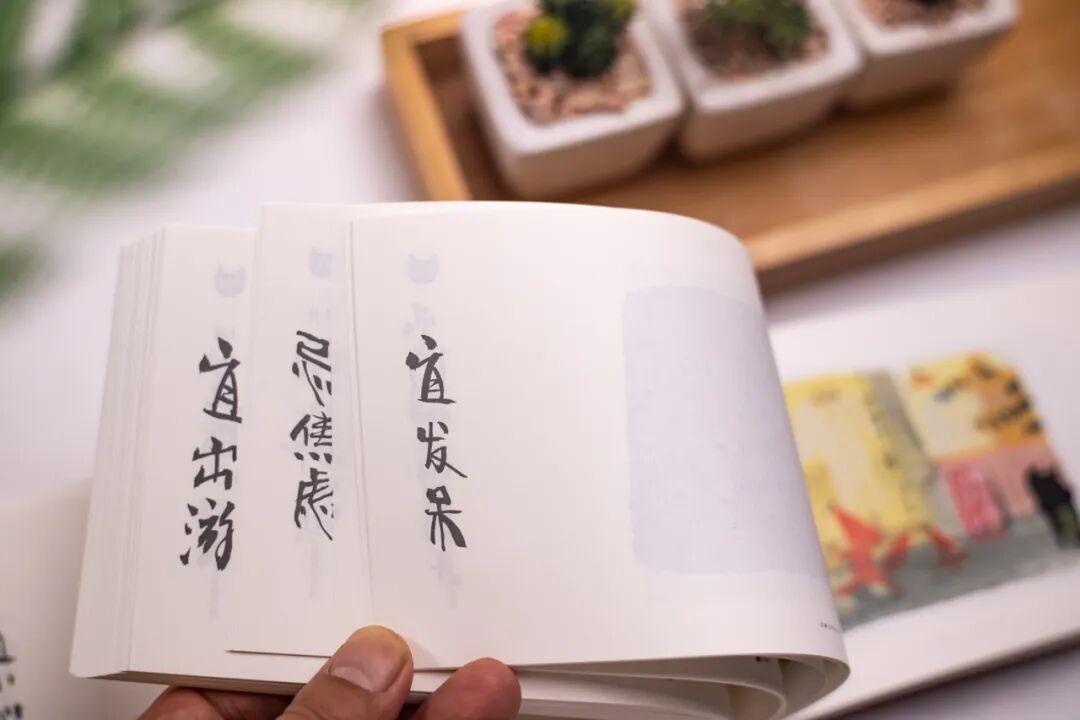 宜发呆
忌焦虑
宜出游